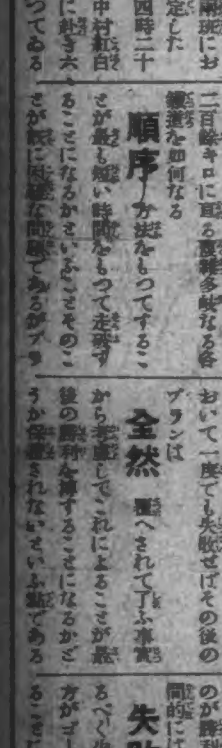 兩班にお
定した
四時二十
中村紅白
に赴き六
つてゐる
二百餘キロに亘る複雜多岐なる各
鐵道を如何なる
順序 方法をもつてするこ
とが最も短い時間をもつて走破す
ることになるかといふことそのこ
とが既に困難な問題であるがプラ
おいて一度でも失敗せばその後の
プランは
全然 覆へされて了ふ事實
から考慮してこれによることが最
後の勝利を博することになるかど
うか保證されないといふ點である
のが勝
間的に
失敗
るべく
方がゴー
ること